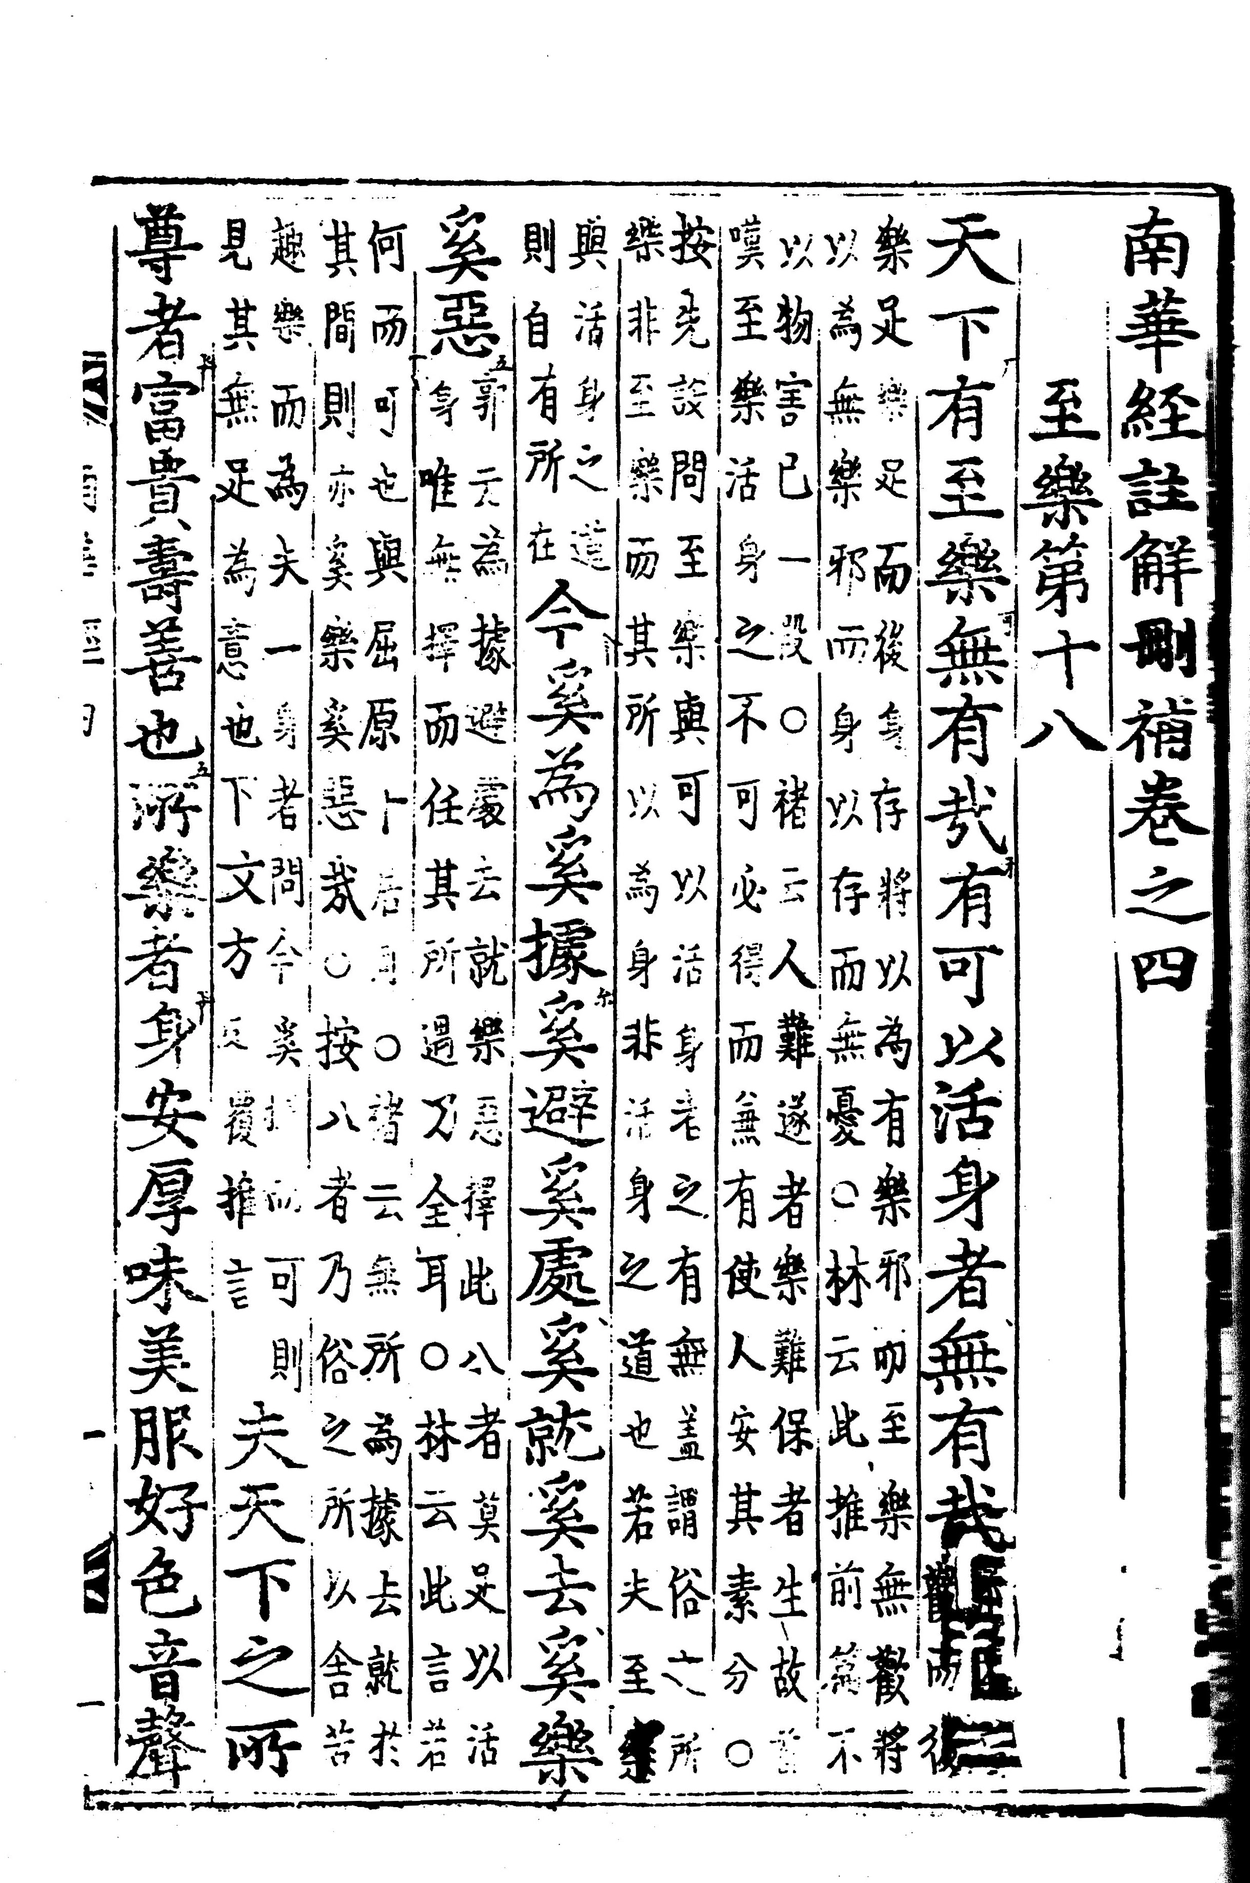 南華経註解刪補卷之四
至樂第十八
天下有至樂無有哉有可以活身者無有哉
歡而後
樂足樂足而後身存將以為有樂邪而至樂無歡將
以為無樂邪而身以存而無憂○林云此推前篇不
以物害已一段○褚云人難遂者樂難保者生故首
嘆至樂活身之不可必得而兼有使人安其素分○
按先設問至樂與可以活身者之有無蓋謂俗之所
樂非至樂而其所以為身非活身之道也若夫至樂
與活身之道
則自有所在
今奚為奚據奚避奚處奚就奚去奚樂
奚惡
郭云為據避處去就樂惡擇此八者莫足以活
身唯無擇而任其所遇乃全耳○林云此言若
何而可也與屈原卜居同○褚云無所為據去就於
其間則亦奚樂奚惡哉○按八者乃俗之所以舍苦
趣樂而為夫一身者問今奚擇而可則
見其無足為意也下文方反覆推言
夫天下之所
尊者富貴壽善也所樂者身安厚味美服好色音聲